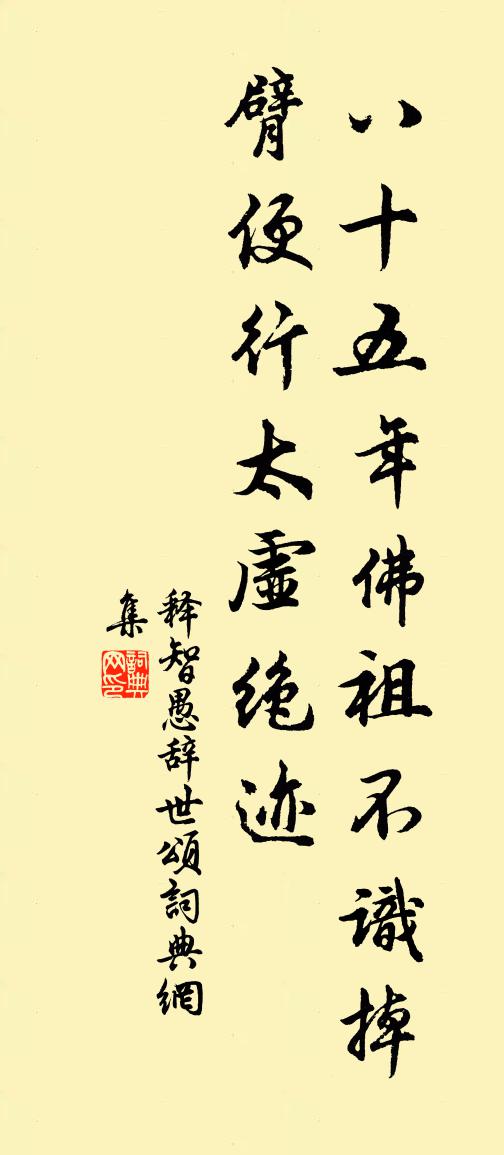 八十五年佛祖不識掉
臂便行太虛绝迹
释智愚辞世頌詞典網
集
詞典网印